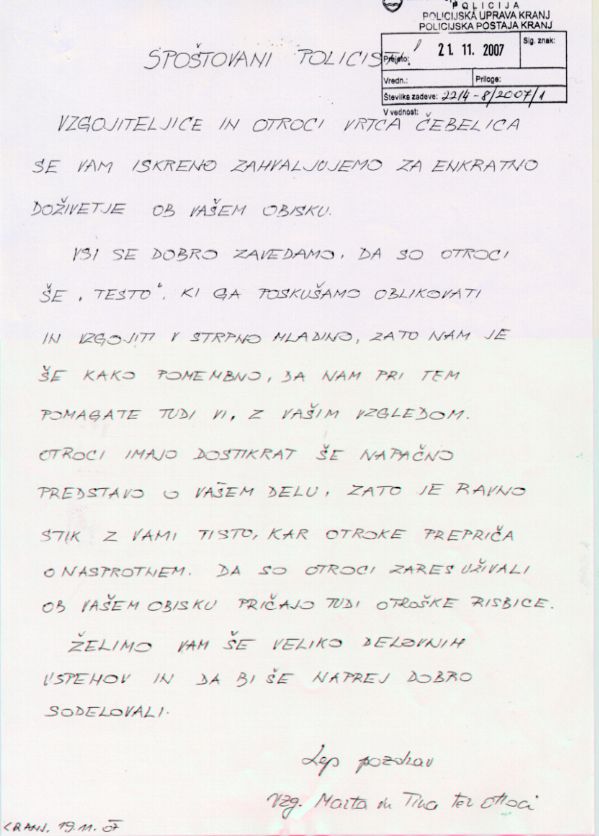 POLICIJA
POLICIJSKA UPRAVA KRANJ
POLICIJSKA POSTAJA KRANJ
Prejeto: 21. 11. 2007 Sig. znak:
Vredn.: Priloge:
Številka zadeve: 2214-8/2007/1
V vednost:
SPOŠTOVANI POLICISTI!
VZGOJITELJICE IN OTROCI VRTCA ČEBELICA
SE VAM ISKRENO ZAHVALJUJEMO ZA ENKRATNO
DOŽIVETJE OB VAŠEM OBISKU.
VSI SE DOBRO ZAVEDAMO, DA SO OTROCI
ŠE "TESTO", KI GA POSKUŠAMO OBLIKOVATI
IN VZGOJITI V STRPNO MLADINO, ZATO NAM JE
ŠE KAKO POMEMBNO, DA NAM PRI TEM
POMAGATE TUDI VI, Z VAŠIM VZGLEDOM.
OTROCI IMAJO DOSTIKRAT ŠE NAPAČNO
PREDSTAVO O VAŠEM DELU, ZATO JE RAVNO
STIK Z VAMI TISTO, KAR OTROKE PREPRIČA
O NASPROTNEM. DA SO OTROCI ZARES UŽIVALI
OB VAŠEM OBISKU PRIČAJO TUDI OTROŠKE RISBICE.
ŽELIMO VAM ŠE VELIKO DELOVNIH
USPEHOV IN DA BI ŠE NAPREJ DOBRO
SODELOVALI.
Lep pozdrav
Vzg. Marta in Tina ter otroci
KRANJ, 19.11.07